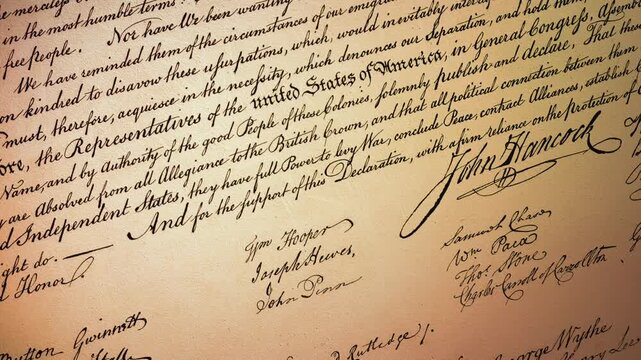 in the most humble terms:
free people. Nor have We been wanting
We have reminded them of the circumstances of our emigra
on kindred to disavow these usurpations, which, would inevitably interr
must, therefore, acquiesce in the necessity, which denounces our Separation, and hold them,
ore, the Representatives of the united States of America, in General Congress, Assem
Name, and by Authority of the good People of these Colonies, solemnly publish and declare, That these
are Absolved from all Allegiance to the British Crown, and that all political connection between them
d Independent States, they have full Power to levy War, conclude Peace, contract Alliances, establish C
ght do. — And for the support of this Declaration, with a firm reliance on the protection of
d Honor
John Hancock
Wm Hooper
Joseph Hewes,
John Penn
Samuel Chase
Wm Paca
Thos. Stone
Charles Carroll of Carrollton
utton Gwinnett
Rutledge
George Wythe